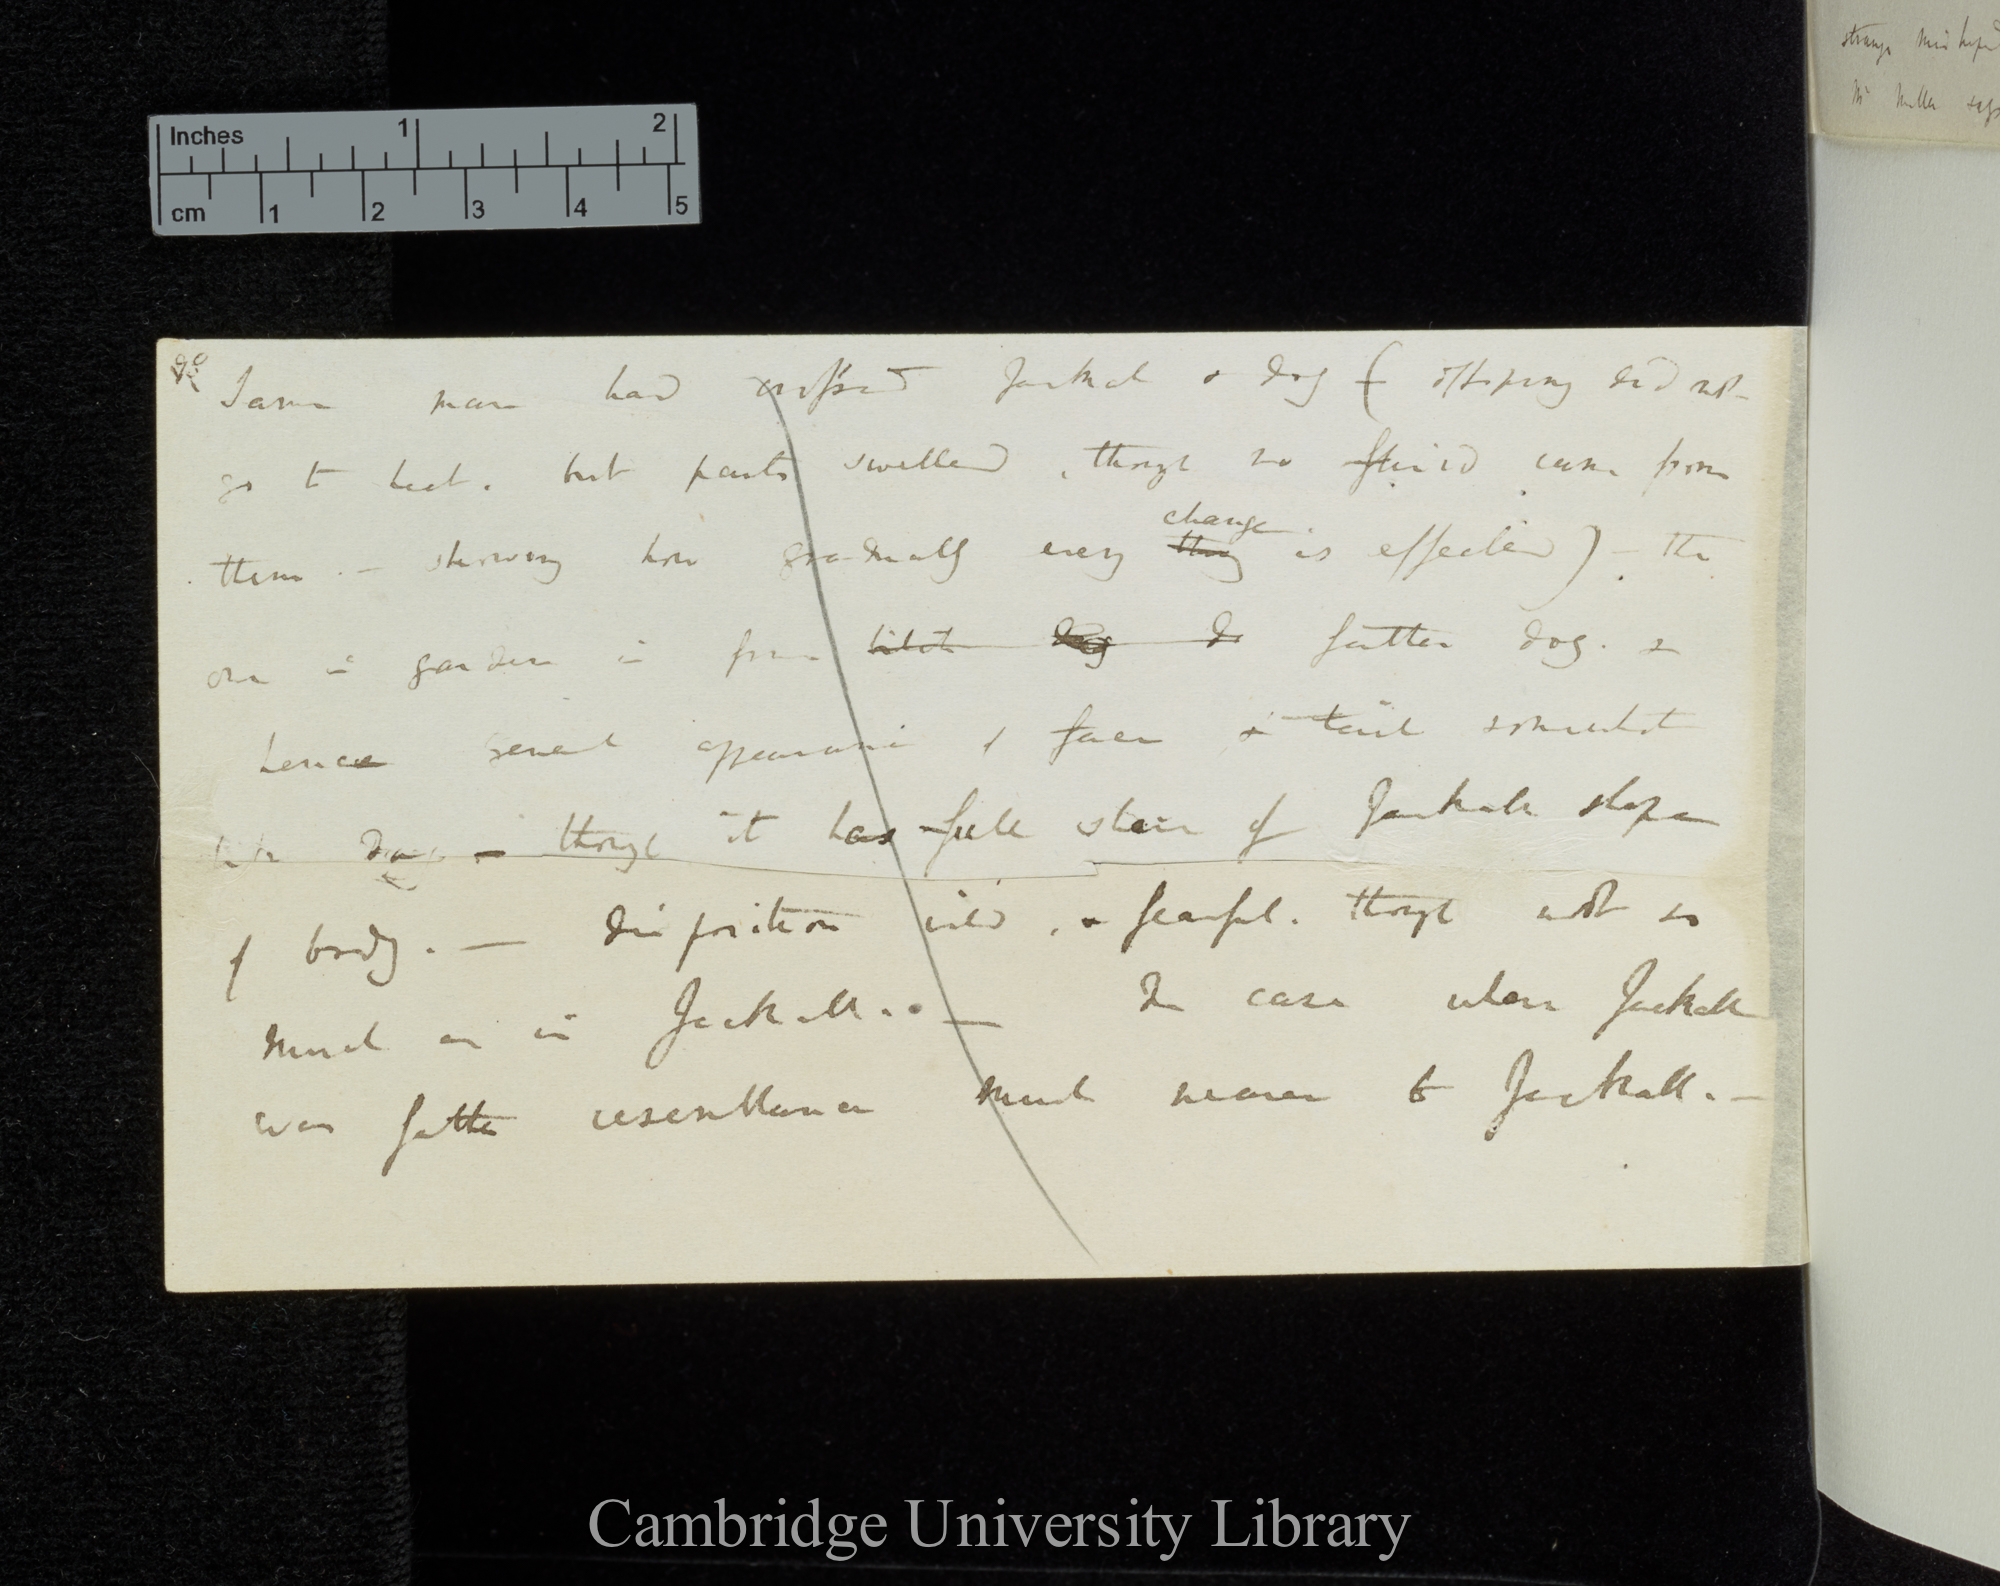 strange
Mr Miller says
Inches 1 2
cm 1 2 3 4 5
Same man had crossed Jackal & dog ( offspring did not
go to heat. but parts swelled, though no fluid came from
them. — showing how gradually every change
thing is effected) — the
one in garden is from bitch dog & father dog. &
hence general appearance of face & tail somewhat
like dog — though it has full share of Jackall shape
of body. — Disposition wild, & fearful. though not so
much as in Jackall. — In case when Jackall
was father resemblance much nearer to Jackall. —
Cambridge University Library